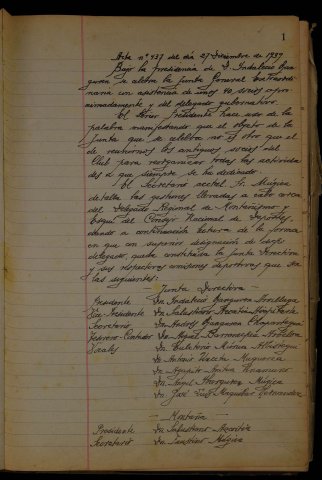 1
Acta nº 437 del día 27 Diciembre de 1939
Bajo la presidencia de D. Indalecio Ojan-
guren se celebra la Junta General Extraordi-
naria con asistencia de unos 40 socios apro-
ximadamente y del delegado gubernativo.
El Señor Presidente hace uso de la
palabra manifestando que el objeto de la
Junta que se celebra no es otro que el
de reunirnos los antiguos socios del
Club para reorganizar todas las activida-
des a que siempre se ha dedicado.
El Secretario acctal. Sr. Múgica
detalla las gestiones llevadas a cabo cerca
del Delegado Regional de Montañismo y
Esquí del Consejo Nacional de Deportes,
dando a continuación lectura de la forma
en que con superior designación de dicho
delegado, queda constituida la Junta Directiva
y sus respectivas comisiones deportivas que son
las siguientes:
— Junta Directiva —
Presidente Dn. Indalecio Ojanguren Arrillaga
Vice-Presidente Dn. Salustiano
Secretario Dn. Andrés
Tesorero-Contador Dn. Angel
Vocales Dn. Eulaterio
Dn. Antonio
Dn. Agapito
Dn. Angel Múgica
Dn. José Luis Hernandez
— Montaña —
Presidente Dn. Salustiano
Secretario Dn. Faustino Múgica